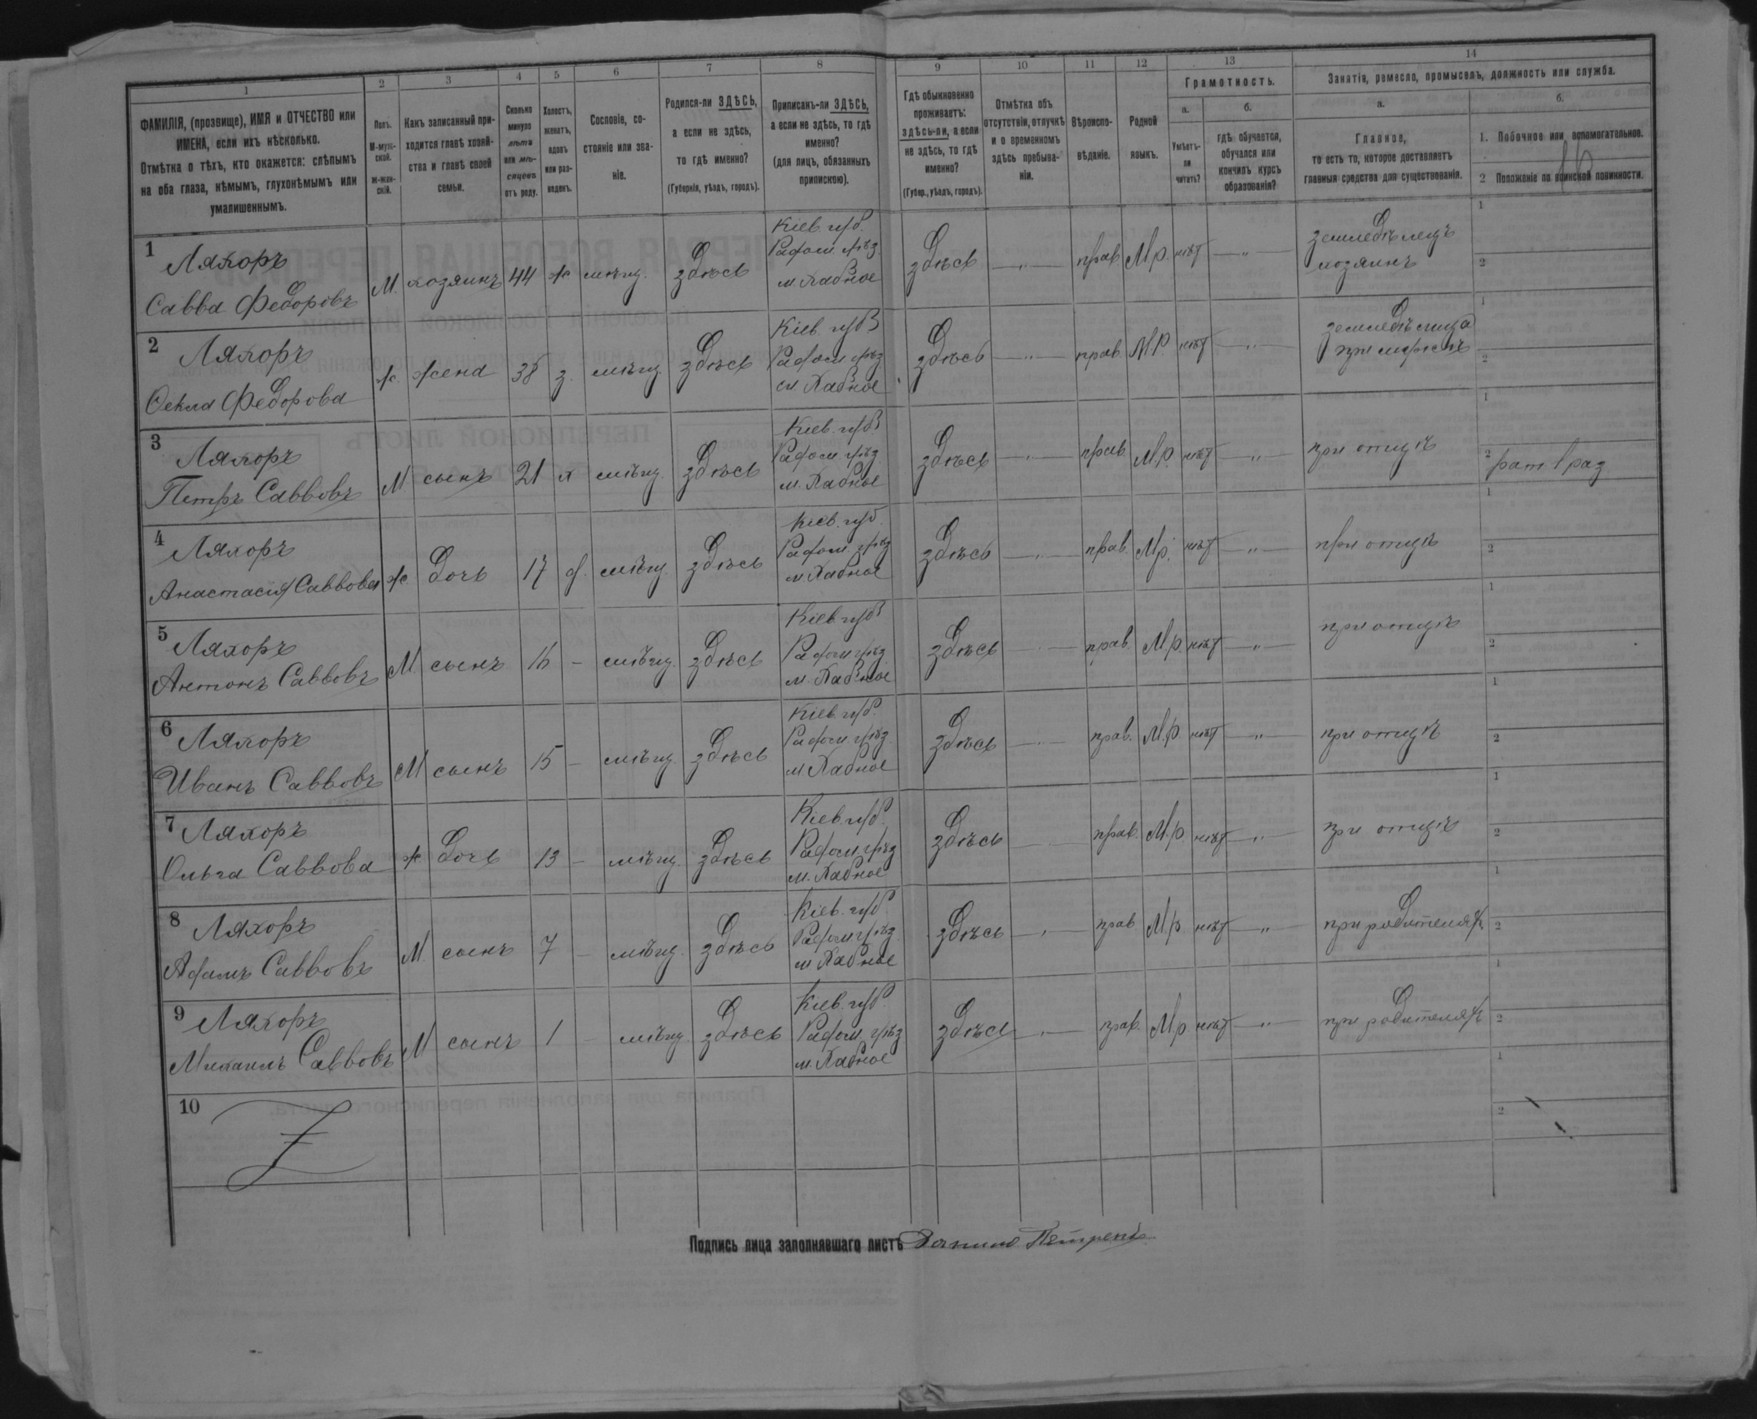 1 2 3 4 5 6 7 8 9 10 11 12 13 14
ФАМИЛІЯ, (прозвище), ИМЯ и ОТЧЕСТВО или
ИМЕНА, если ихъ нѣсколько.
Отмѣтка о тѣхъ, кто окажется: слѣпымъ
на оба глаза, нѣмымъ, глухонѣмымъ или
умалишеннымъ.
Полъ.
М-муж-
ской.
ж-жен-
скій.
Какъ записанный при-
ходится главѣ хозяй-
ства и главѣ своей
семьи.
Сколько
минуло
лѣтъ
или мѣ-
сяцевъ
отъ роду.
Холостъ,
женатъ,
вдовъ
или раз-
веденъ.
Сословіе, со-
стояніе или зва-
ніе.
Родился-ли ЗДѢСЬ,
а если не здѣсь,
то гдѣ именно?
(Губернія, уѣздъ, городъ).
Приписанъ-ли ЗДѢСЬ,
а если не здѣсь, то гдѣ
именно?
(для лицъ, обязанныхъ
припискою).
Гдѣ обыкновенно
проживаетъ:
здѣсь-ли, а если
не здѣсь, то гдѣ
именно?
(Губер., уѣздъ, городъ).
Отмѣтка объ
отсутствіи, отлучкѣ
и о временномъ
здѣсь пребыва-
ніи.
Вѣроиспо-
вѣданіе.
Родной
языкъ.
Грамотность.
а.
Умѣетъ-
ли
читать?
б.
гдѣ обучается,
обучался или
кончилъ курсъ
образованія?
Занятія, ремесло, промыселъ, должность или служба.
а.
Главное,
то есть то, которое доставляетъ
главныя средства для существованія.
б.
1. Побочное или вспомогательное.
2 Положеніе по воинской повинности.
1 Ляхоръ
Савва Федоровъ
М хозяинъ 44 ж мѣщ. здѣсь
Кіев. губ.
Радом. уѣзд
м. Хабное
здѣсь — " — прав. М.р. нѣт — " —
земледѣлецъ
хозяинъ
1
2
2 Ляхоръ
Фекла Федорова
ж. жена 38 з. мѣщ здѣсь
Кіев. губ
Радом уѣзд
м Хабное
здѣсь — " — прав. М.р. нѣт — " —
при мужѣ
1
2
3 Ляхоръ
Петръ Саввовъ
М сынъ 21 х мѣщ. здѣсь
Кіев. губ
Радом уѣзд
м. Хабное
здѣсь — " — прав. М.р. нѣт — " —
при отцѣ
1
2 рат 1 раз
4 Ляхоръ
Анастасія Саввова
ж. дочь 17 д. мѣщ. здѣсь
Кіев. губ.
Радом. уѣзд
м. Хабное
здѣсь — " — прав. М.р. нѣт — " —
при отцѣ
1
2
5 Ляхоръ
Антонъ Саввовъ
М сынъ 16 – мѣщ. здѣсь
Кіев. губ
Радом уѣзд
м. Хабное
здѣсь прав. М.р. нѣт — " —
при отцѣ
1
2
6 Ляхоръ
Иванъ Саввовъ
М сынъ 15 – мѣщ. здѣсь
Кіев. губ.
Радом уѣзд
м Хабное
здѣсь прав. М.р. нѣт — " —
при отцѣ
1
2
7 Ляхоръ
Ольга Саввова
ж дочь 13 – мѣщ. здѣсь
Кіев. губ.
Радом. уѣзд
м. Хабное
здѣсь прав. М.р. нѣт — " —
при отцѣ
1
2
8 Ляхоръ
Адамъ Саввовъ
М сынъ 7 – мѣщ. здѣсь
Кіев. губ.
Радом уѣзд
м Хабное
здѣсь прав М.р нѣт — " —
при родителяхъ
1
2
9 Ляхоръ
Михаилъ Саввовъ
М сынъ 1 – мѣщ. здѣсь
Кіев. губ
Радом. уѣзд
м. Хабное
здѣсь прав. М.р нѣт — " —
при родителяхъ
1
2
10
1
2
Подпись лица заполнявшаго листъ